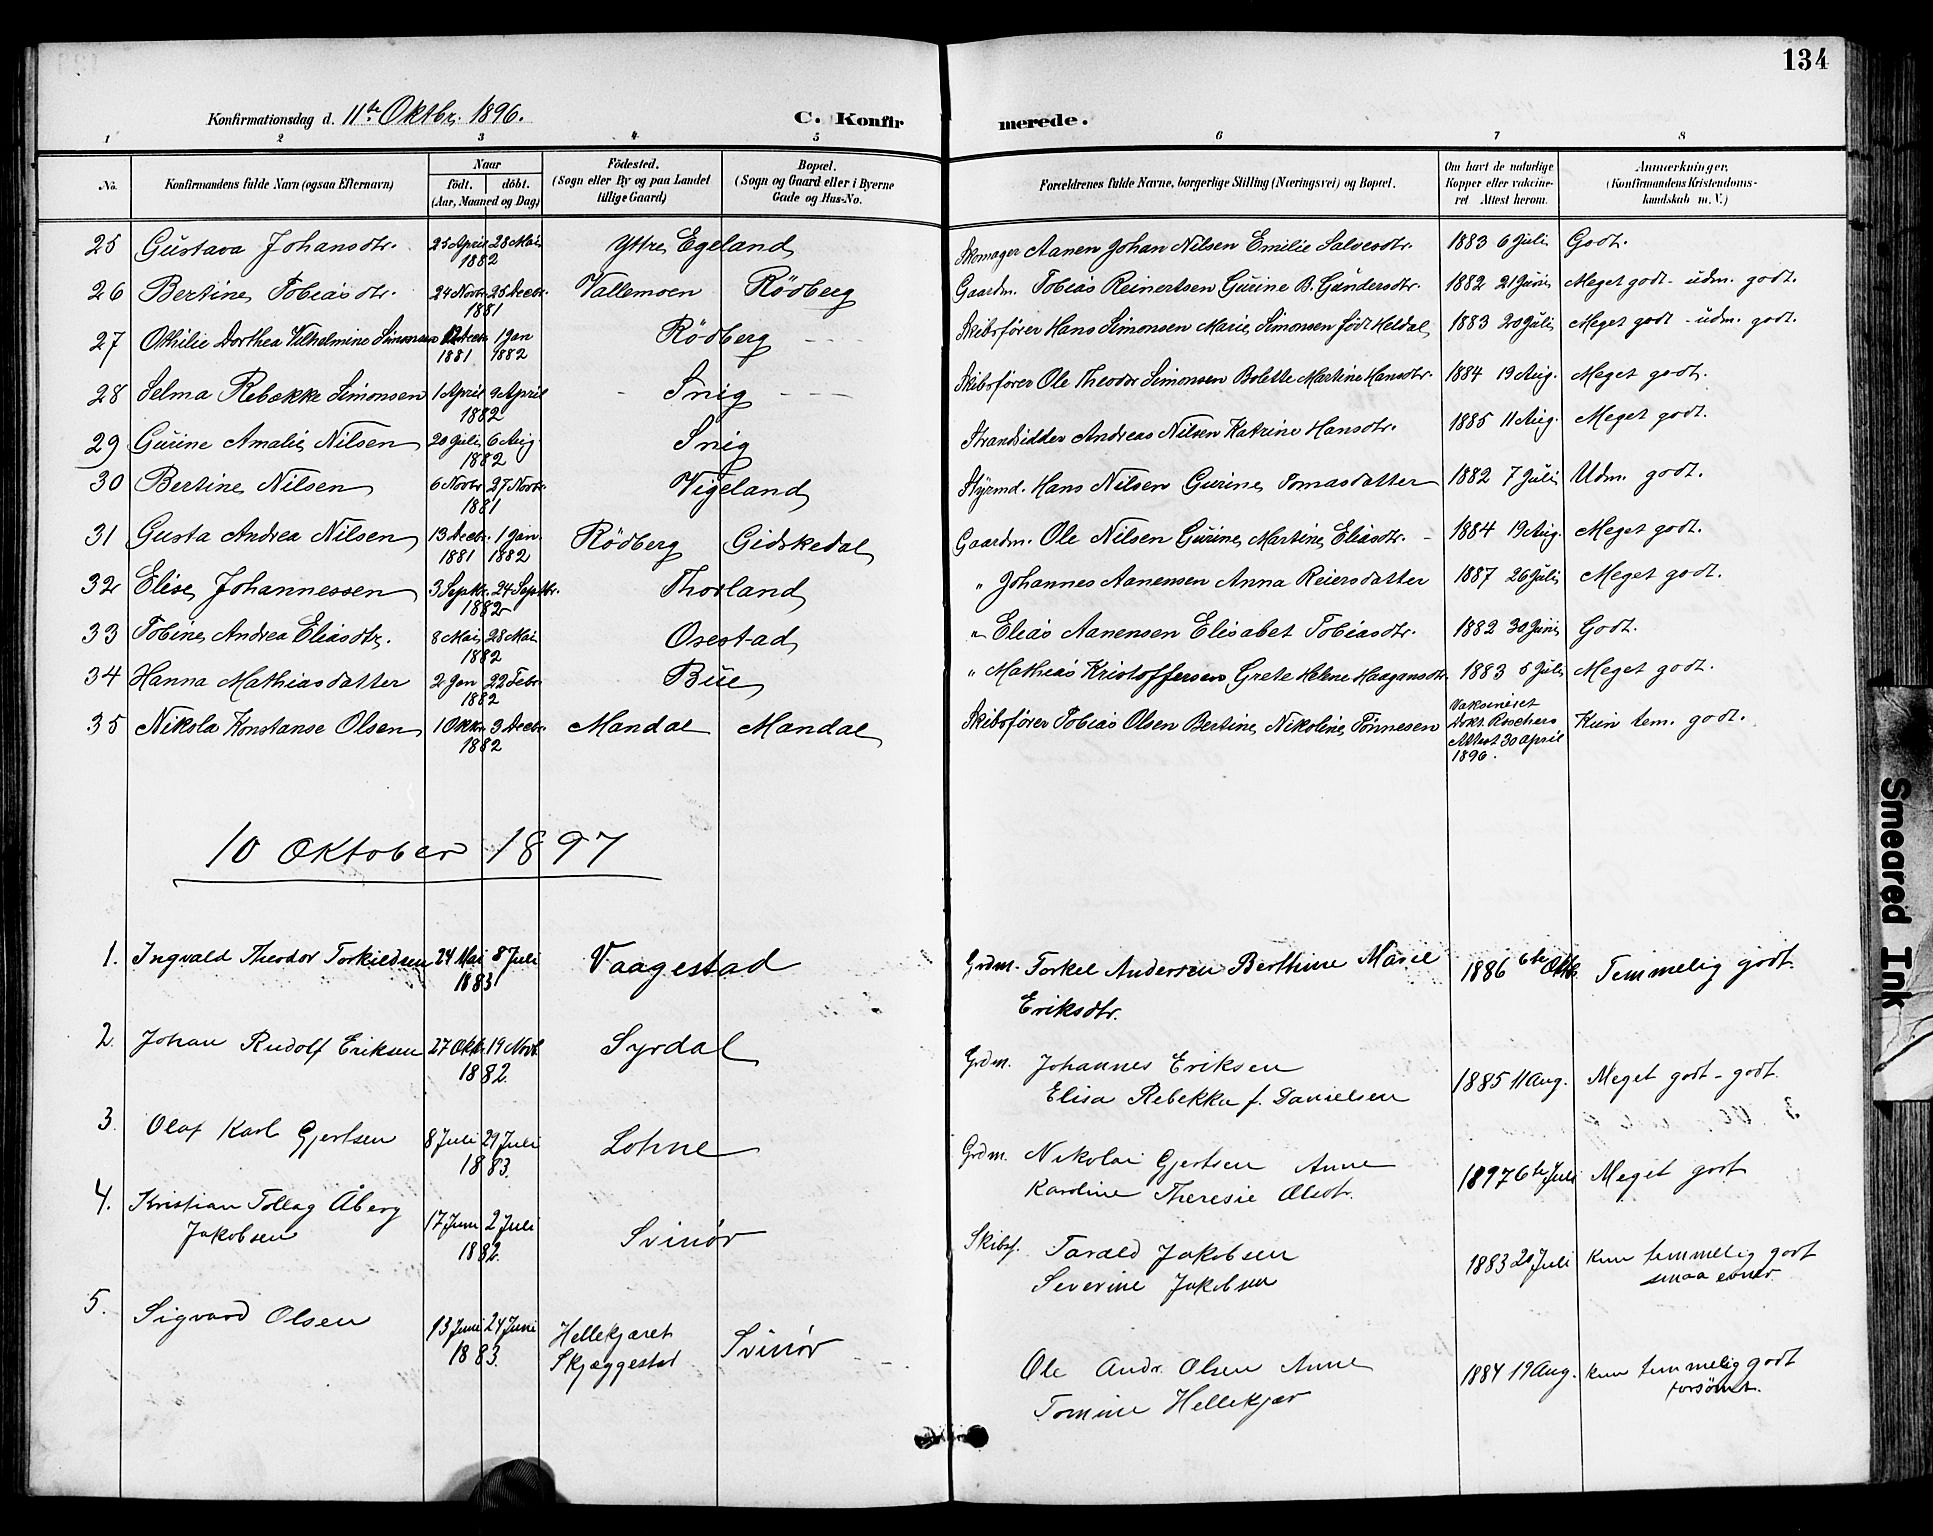 134
Konfirmationsdag d. 11te Oktbr. 1896. C. Konfirmerede.
1 2 3 4 5 6 7 8
No. Konfirmandens fulde Navn (ogsaa Efternavn) Naar født. døbt. (Aar, Maaned og Dag) Fødested. (Sogn eller By og paa Landet tillige Gaard) Bopæl. (Sogn og Gaard eller i Byerne Gade og Hus-No. Forældrenes fulde Navne, borgerlige Stilling (Næringsvei) og Bopæl. Om havt de naturlige Kopper eller vakcineret Attest herom. Anmærkninger. (Konfirmandens Kristendomskundskab m. V.)
25 Gustava Johansdtr. 25 April 28 Mai 1882 Yttre Egeland Skomager Aanen Johan Nilsen Emilie Salvesdtr. 1883 6 Juli Godt.
26 Bertine Tobiasdtr. 24 Novbr. 25 Decbr. 1881 Vallemoen Rödberg Gaardm. Tobias Reinertsen Gurine B. Gundersdtr. 1882 21 Juni Meget godt - udm. godt.
27 Othilie Dorthea Vilhelmine Simonsen Decbr. 1881 1 Jan 1882 Rödberg Skibsfører Hans Simonsen Marie Simonsen født Heldal 1883 20 Juli Meget godt - udm. godt.
28 Selma Rebekke Simonsen 1 April 9 April 1882 - Snig - - - Skibsfører Ole Theodor Simonsen Bolette Martine Hansdtr. 1884 19 Aug. Meget godt.
29 Gurine Amalie Nilsen 20 Juli 6 Aug 1882 Snig Strandsidder Andreas Nilsen Katrine Hansdtr. 1885 11 Aug. Meget godt.
30 Bertine Nilsen 6 Novbr. 27 Novbr. 1881 Vigeland Styrmd. Hans Nilsen Gurine Tomasdatter 1882 7 Juli Udm. godt.
31 Gusta Andrea Nilsen 13 Decbr. 1881 1 Jan. 1882 Rödberg Gidskedal Gaardm. Ole Nilsen Gurine Martine Eliasdtr. - 1884 19 Aug. Meget godt.
32 Elise Johannessen 3 Septbr. 24 Septbr. 1882 Thorland " Johannes Aanensen Anna Reiersdatter 1887 26 Juli Meget godt.
33 Tobine Andrea Eliasdtr. 8 Mai 28 Mai 1882 Osestad " Elias Aanensen Elisabet Tobiasdtr. 1882 30 Juni Godt.
34 Hanna Mathiasdatter 2 Jan 22 Febr. 1882 Bue " Mathias Kristoffersen Grete Helene Haagansdtr. 1883 5 Juli Meget godt.
35 Nikola Konstanse Olsen 1 Oktbr. 3 Decbr. 1882 Mandal Mandal Skibsfører Tobias Olsen Bertine Nikoline Tönnesen Vaksineret Dokt. Attest 30 April 1896. Kun tem. godt.
10 Oktober 1897
1. Ingvald Theodor Torkildsen 24 Mai 8 Juli 1883 Vaagestad Grdm. Torkel Andersen Berthine Marie 1886 6te Oktb. Temmelig godt.
Eriksdtr.
2. Johan Rudolf Eriksen 27 Oktb. 19 Novb. 1882. Syrdal Grdm. Johannes Eriksen 1885 11 Aug. Meget godt - godt.
Elisa Rebekka f. Danielsen
3. Olaf Karl Gjertsen 8 Juli 29 Juli 1883. Lohne Grdm. Nikolai Gjertsen Anne 1897 6te Juli Meget godt
Karoline Theresie Olsdtr.
4. Kristian Tollag Åberg 17 Juni 2 Juli 1882. Svinör Skibsf. Tarald Jakobsen 1883 20 Juli Kun temmelig godt
Jakobsen Severine Jakobsen smaa evner
5. Sigvard Olsen 13 Juni 24 Juni 1883. Hellekjæret Svinör
Skjæggestad Ole Andr. Olsen Anne 1884 19 Aug. Kun temmelig godt
Tomine Hellekjær forsömt.
Smeared Ink